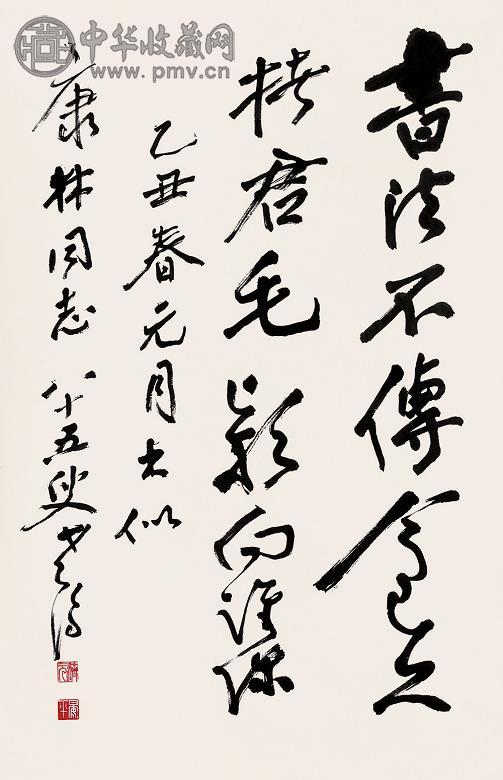 中华收藏网
www.pmv.cn
書法不傳今已久
楮君毛穎向誰陳
乙丑春元月書似
康林同志 八十五叟